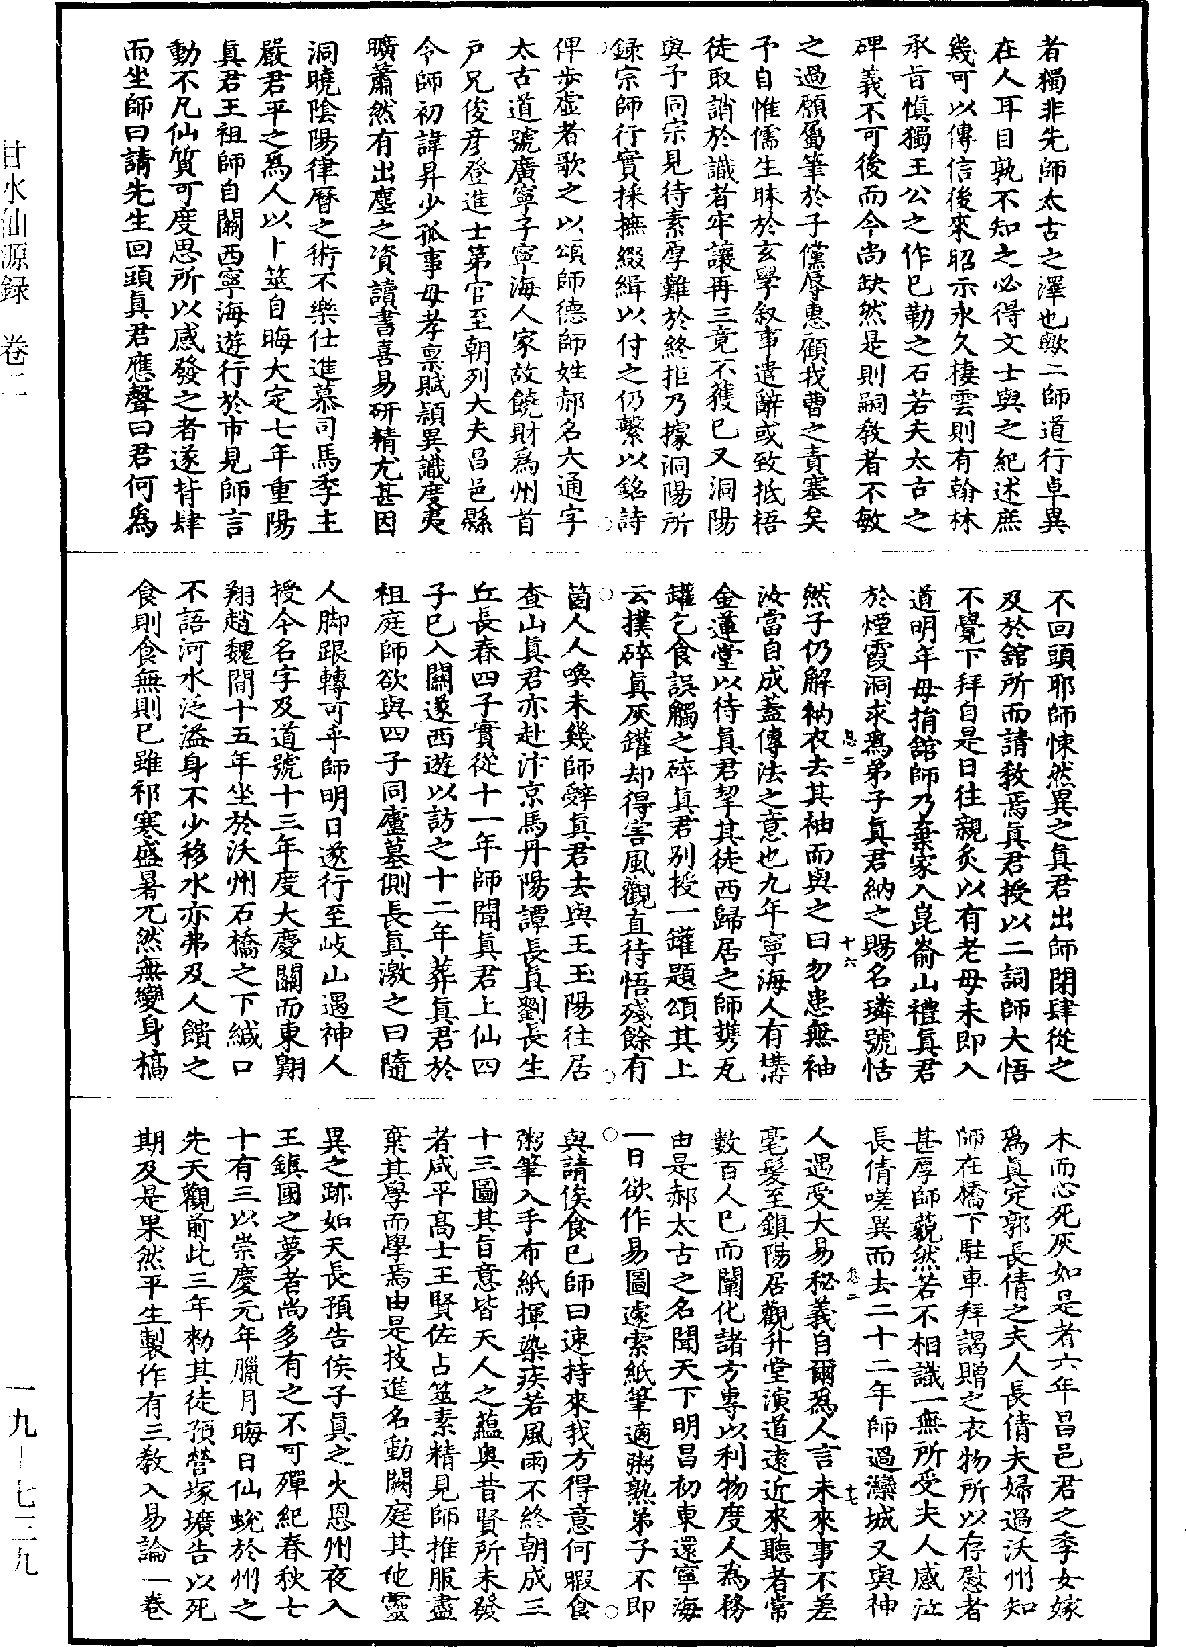 者獨非先師太古之澤也歟二師道行卓異
在人耳目孰不知之必得文士與之紀述庶
幾可以傳信後來昭示永久棲雲則有翰林
承旨慎獨王公之作已勒之石若夫太古之
碑義不可後而今尚缺然是則嗣教者不敏
之過願屬筆於子儻辱惠顧我曹之責塞矣
予自惟儒生昧於玄學叙事遣辭或致抵牾
徒取誚於識者牢讓再三竟不獲已又洞陽
與予同宗見待素厚難於終拒乃據洞陽所
録宗師行實採摭綴緝以付之仍繫以銘詩
俾步虛者歌之以頌師德師姓郝名大通字
太古道號廣寧子寧海人家故饒財為州首
戶兄俊彦登進士第官至朝列大夫昌邑縣
令師初諱昇少孤事母孝稟賦穎異識度夷
曠蕭然有出塵之資讀書喜易研精尤甚因
洞曉陰陽律曆之術不樂仕進慕司馬季主
嚴君平之為人以卜筮自晦大定七年重陽
真君王祖師自關西寧海遊行於市見師言
動不凡仙質可度思所以感發之者遂背肆
而坐師曰請先生回頭真君應聲曰君何為
不回頭耶師悚然異之真君出師閉肆從之
及於舘所而請教焉真君授以二詞師大悟
不覺下拜自是日往親炙以有老母未即入
道明年母捐舘師乃棄家入崑崳山禮真君
於煙霞洞求為弟子真君納之賜名璘號恬
然子仍解衲衣去其袖而與之曰勿患無袖
汝當自成蓋傳法之意也九年寧海人有搆
金蓮堂以待真君挈其徒西歸居之師携瓦
罐乞食誤觸之碎真君别授一罐題頌其上
云撲碎真灰罐却得害風觀直待悟殘餘有
箇人人喚未幾師辭真君去與王玉陽往居
查山真君亦赴汴京馬丹陽譚長真劉長生
丘長春四子實從十一年師聞真君上仙四
子已入關遂西遊以訪之十二年葬真君於
祖庭師欲與四子同廬墓側長真激之曰隨
人脚跟轉可乎師明日遂行至岐山遇神人
授今名字及道號十三年度大慶關而東翺
翔趙魏間十五年坐於沃州石橋之下緘口
不語河水泛溢身不少移水亦弗及人饋之
食則食無則已雖祁寒盛暑兀然無變身槁
木而心死灰如是者六年昌邑君之季女嫁
為真定郭長倩之夫人長倩夫婦過沃州知
師在橋下駐車拜謁贈之衣物所以存慰者
甚厚師藐然若不相識一無所受夫人感泣
長倩嗟異而去二十二年師過灤城又與神
人遇受大易秘義自爾為人言未來事不差
毫髮至鎮陽居觀升堂演道遠近來聽者常
數百人已而闡化諸方專以利物度人為務
由是郝太古之名聞天下明昌初東還寧海
一日欲作易圖遽索紙筆適粥熟弟子不即
與請俟食已師曰速持來我方得意何暇食
粥筆入手布紙揮染疾若風雨不終朝成三
十三圖其旨意皆天人之蘊奥昔賢所未發
者咸平高士王賢佐占筮素精見師推服盡
棄其學而學焉由是技進名動闕庭其他靈
異之跡如天長預告侯子真之火恩州夜入
王鎮國之夢者尚多有之不可殫紀春秋七
十有三以崇慶元年臘月晦日仙蛻於州之
先天觀前此三年勑其徒預營塚壙告以死
期及是果然平生製作有三教入易論一卷
甘水仙源録 卷二
一九－七三九